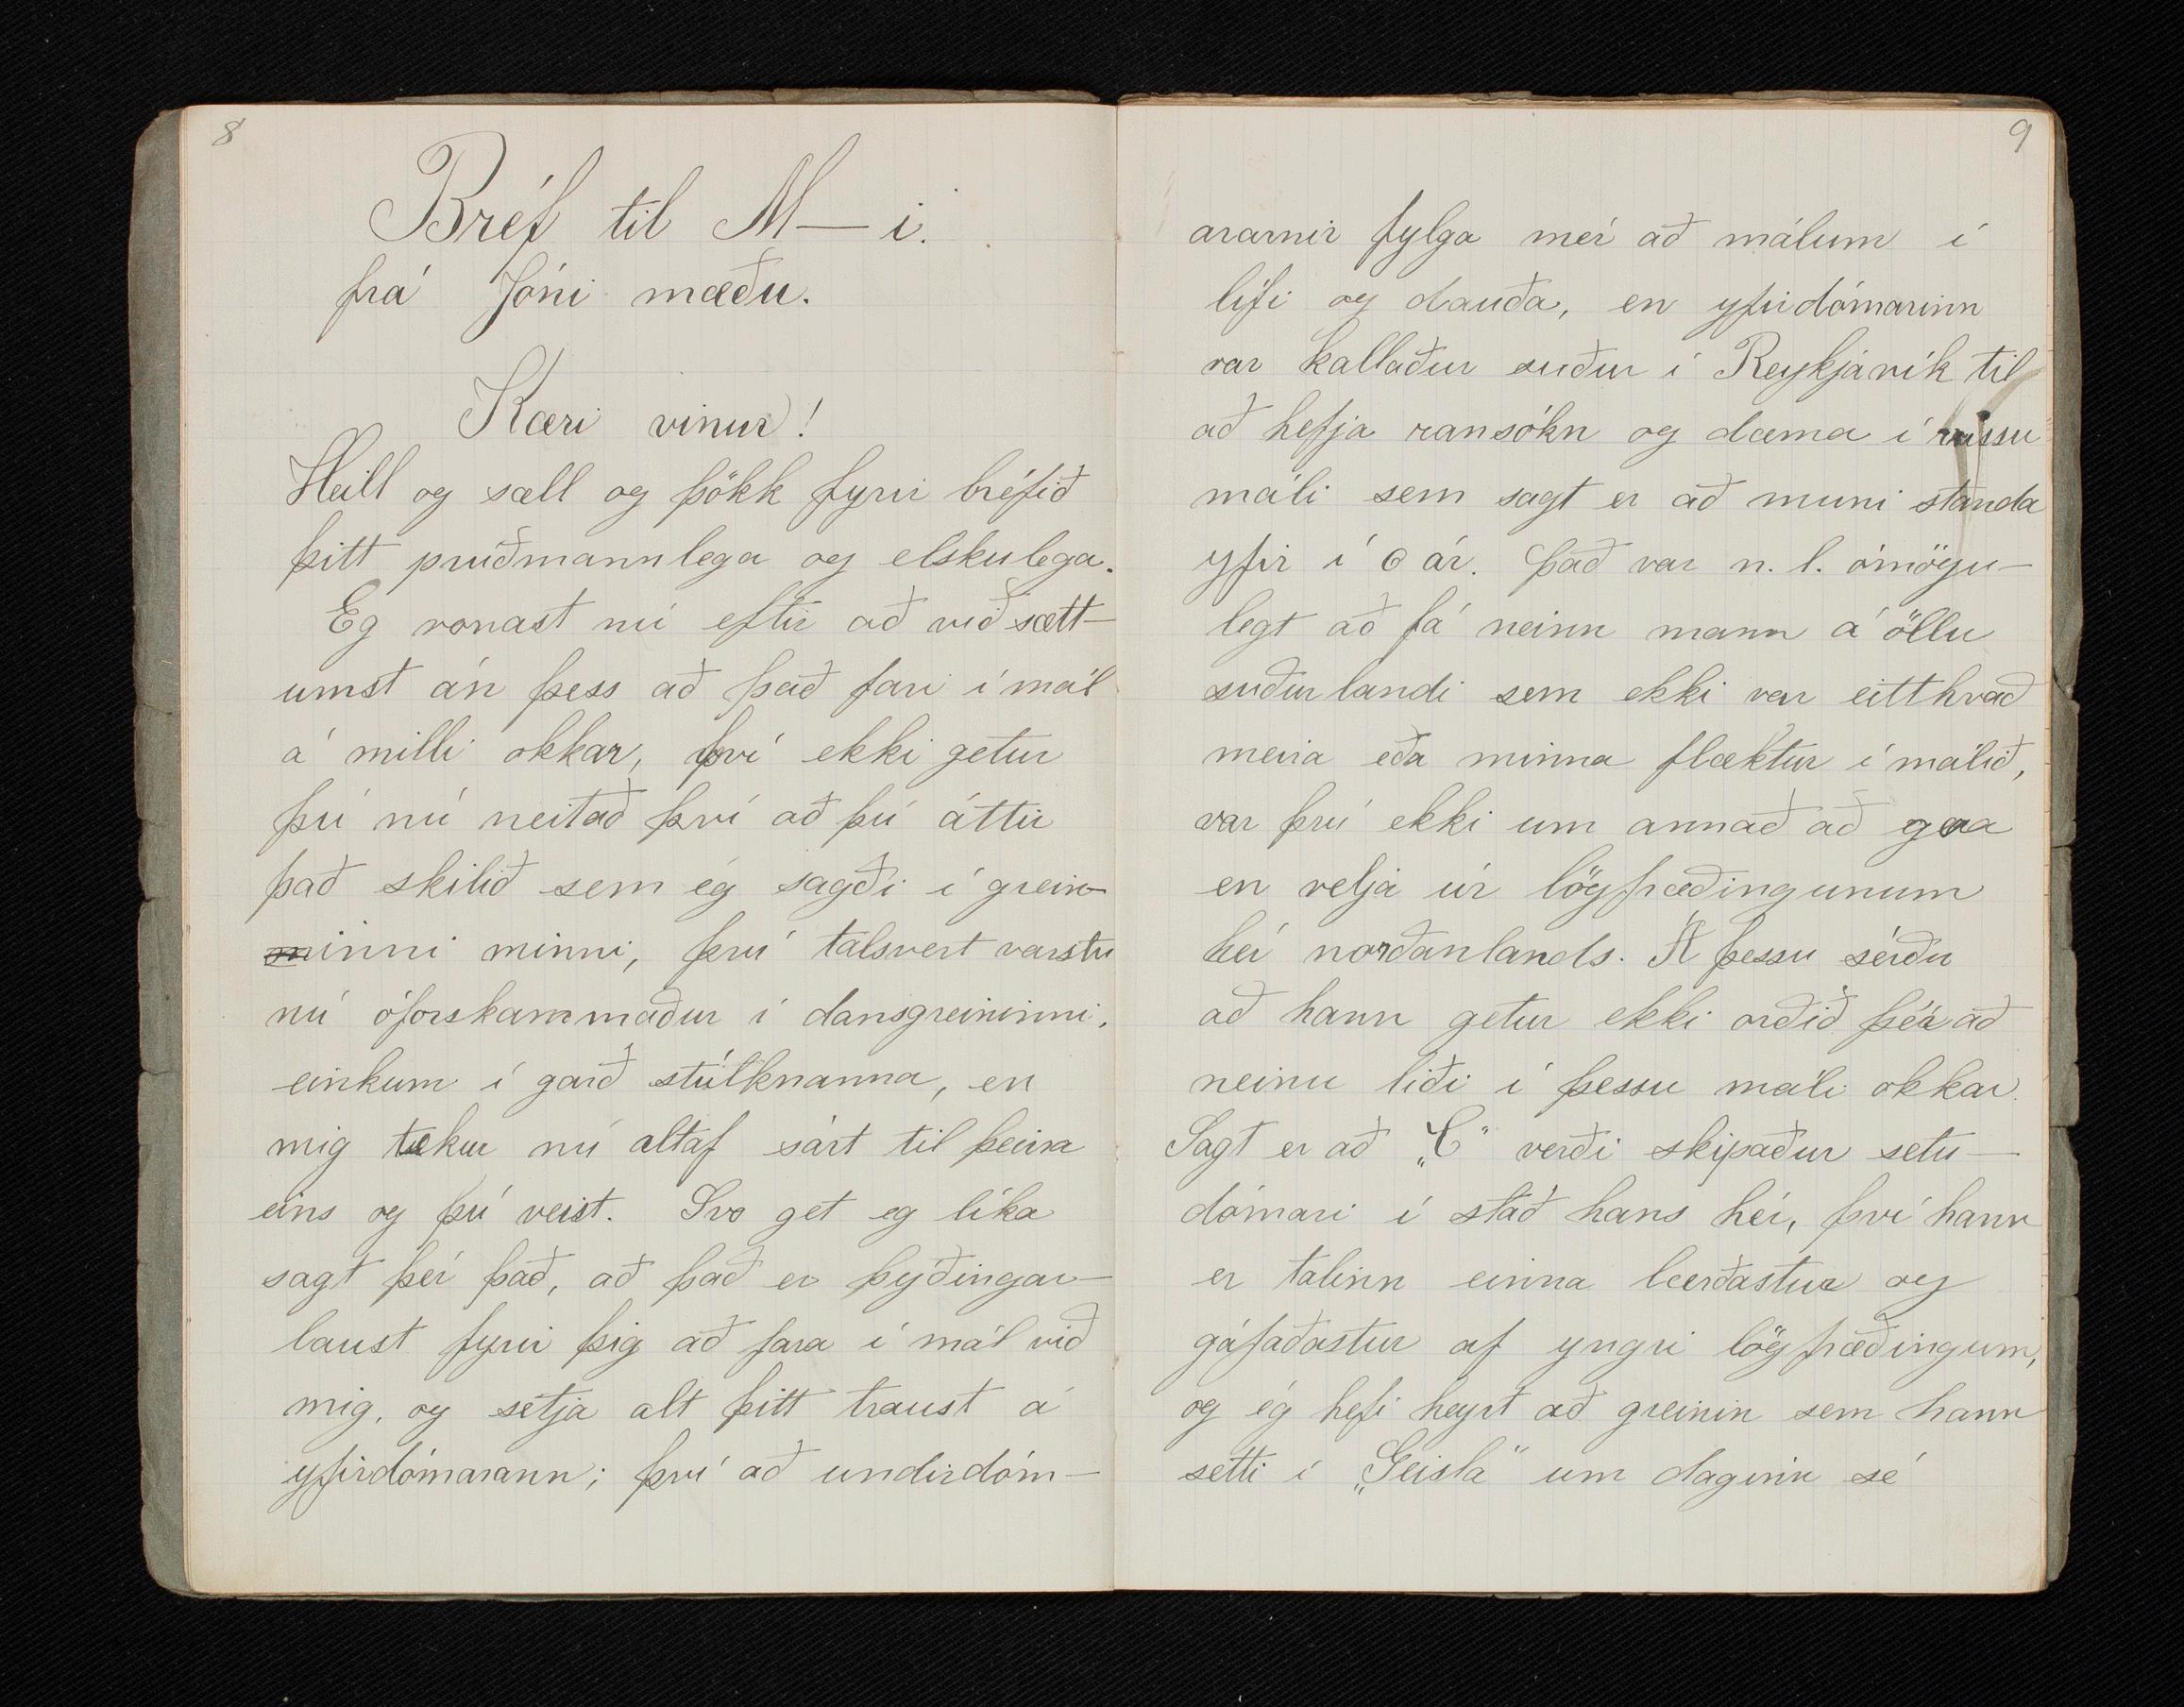 8
Bréf til M—i.
frá Jóni mæðu.
Kæri vinur!
Heill og sæll og þökk fyrir bréfið
þitt prúðmannlega og elskulega.
Eg vonast nú eftir að við sætt-
umst án þess að það fari í mál
á milli okkar, því ekki getur
þú nú neitað því að þú áttir
það skilið sem ég sagði í grein-
inni minni, því talsvert varstu
nú óforskammaður í dansgreininni,
einkum í garð stúlknanna, en
mig tekur nú altaf sárt til þeirra
eins og þú veist. Svo get eg líka
sagt þér það, að það er þýðingar-
laust fyrir þig að fara í mál við
mig, og setja alt þitt traust á
yfirdómarann; því að undirdóm-
9
ararnir fylga mér að málum í
lífi og dauða, en yfirdómarinn
var kallaður suður í Reykjavík til
að hefja ransókn og dæma í vissu
máli sem sagt er að muni standa
yfir í 6 ár. Það var n. l. ómögu-
legt að fá neinn mann á öllu
suðurlandi sem ekki var eitthvað
meira eða minna flæktur í málið,
var því ekki um annað að gera
en velja úr lögfræðingunum
hér norðanlands. Á þessu sérðu
að hann getur ekki orðið þér að
neinu liði í þessu máli okkar.
Sagt er að „C" verði skipaður setu-
dómari í stað hans hér, því hann
er talinn einna lærðastur og
gáfaðastur af yngri lögfræðingum,
og ég hefi heyrt að greinin sem hann
setti í „Geisla" um daginn sé